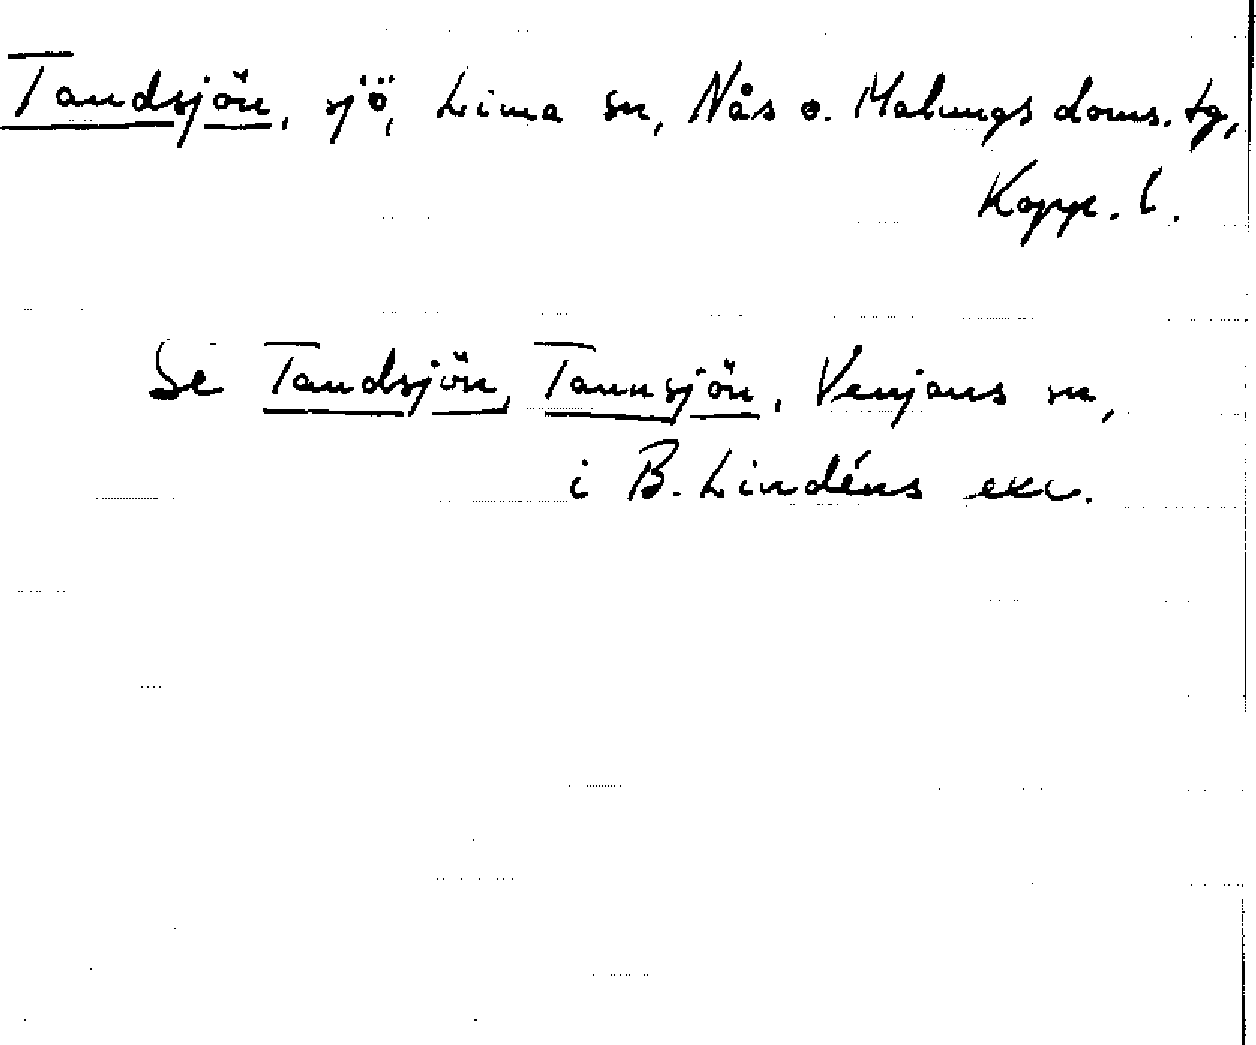 Tandsjön, sjö, Lima sn, Nås o. Malungs doms. tg,
Kopp. l.
Se Tandsjön, Tannsjön, Venjans sn,
i B. Lindéns exc.